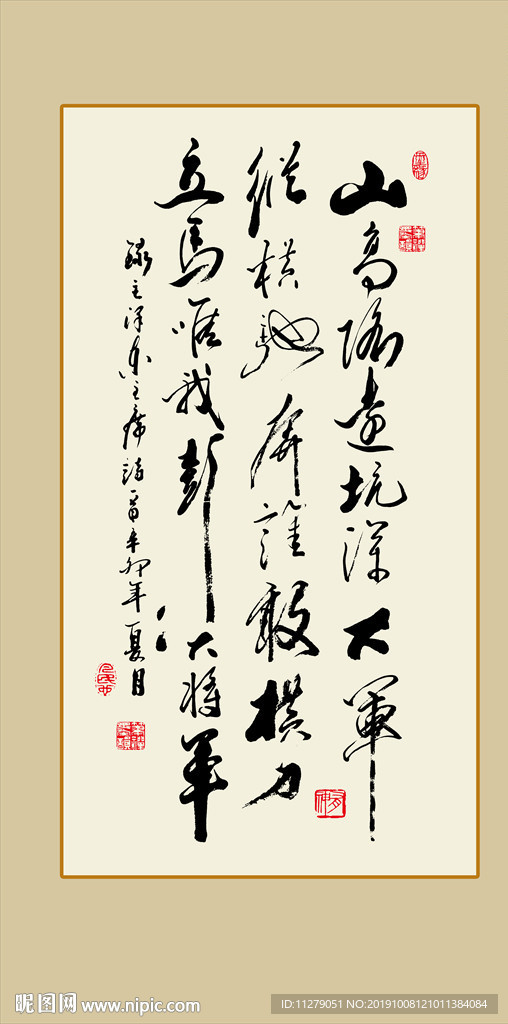 山高路遠坑深大軍
縱橫馳奔誰敢横刀
立馬唯我彭大将軍
錄毛泽东主席詩一首辛卯年夏月
昵图网 www.nipic.com
ID:11279051 NO:20191008121011384084